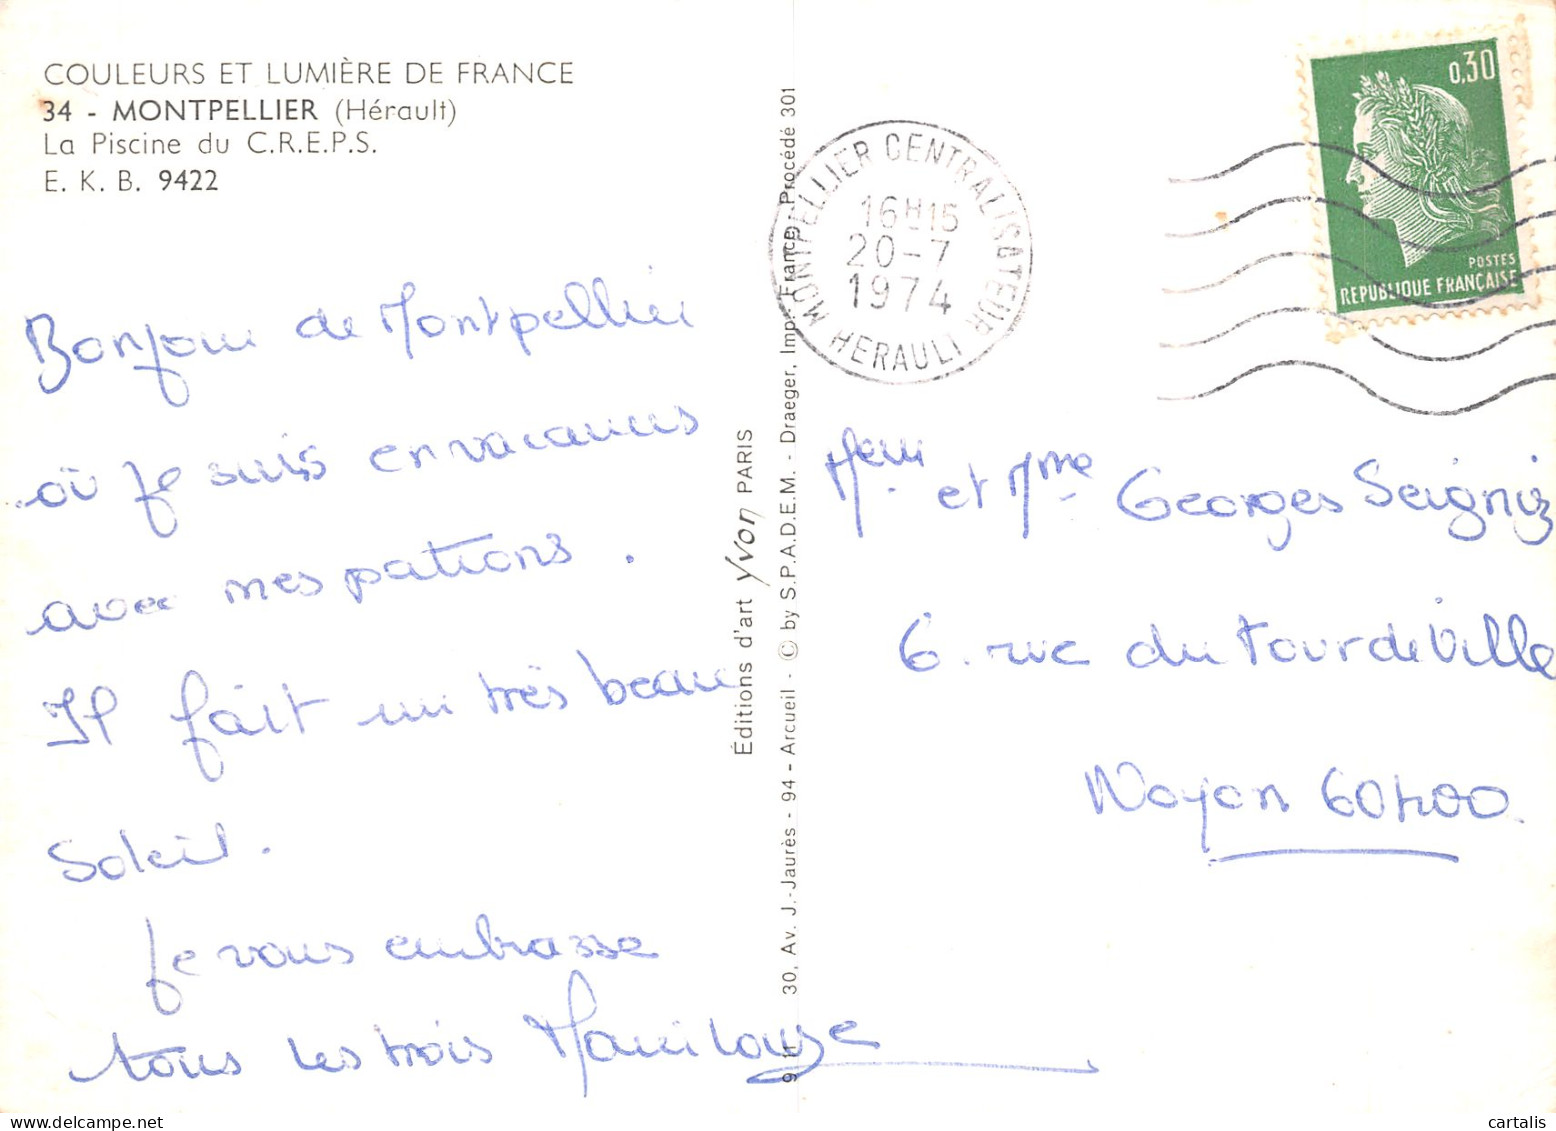 COULEURS ET LUMIÈRE DE FRANCE
34 - MONTPELLIER (Hérault)
La Piscine du C.R.E.P.S.
E. K. B. 9422
Bonjour de Montpellier
où je suis en vacances
avec mes patrons.
Il fait un très beau
Soleil.
Je vous embrasse
tous les trois Marilouise
Éditions d'art Yvon PARIS
30, Av. J.-Jaurès - 94 - Arcueil - © by S.P.A.D.E.M. - Draeger, Imp. France, Procédé 301
9 11
MONTPELLIER CENTRALISATEUR
16H15
20-7
1974
HERAULT
0,30
POSTES
REPUBLIQUE FRANÇAISE
et Mme Georges Seigniz
6. rue du Tour de Ville
Noyon 60400.
www.cartalis.com